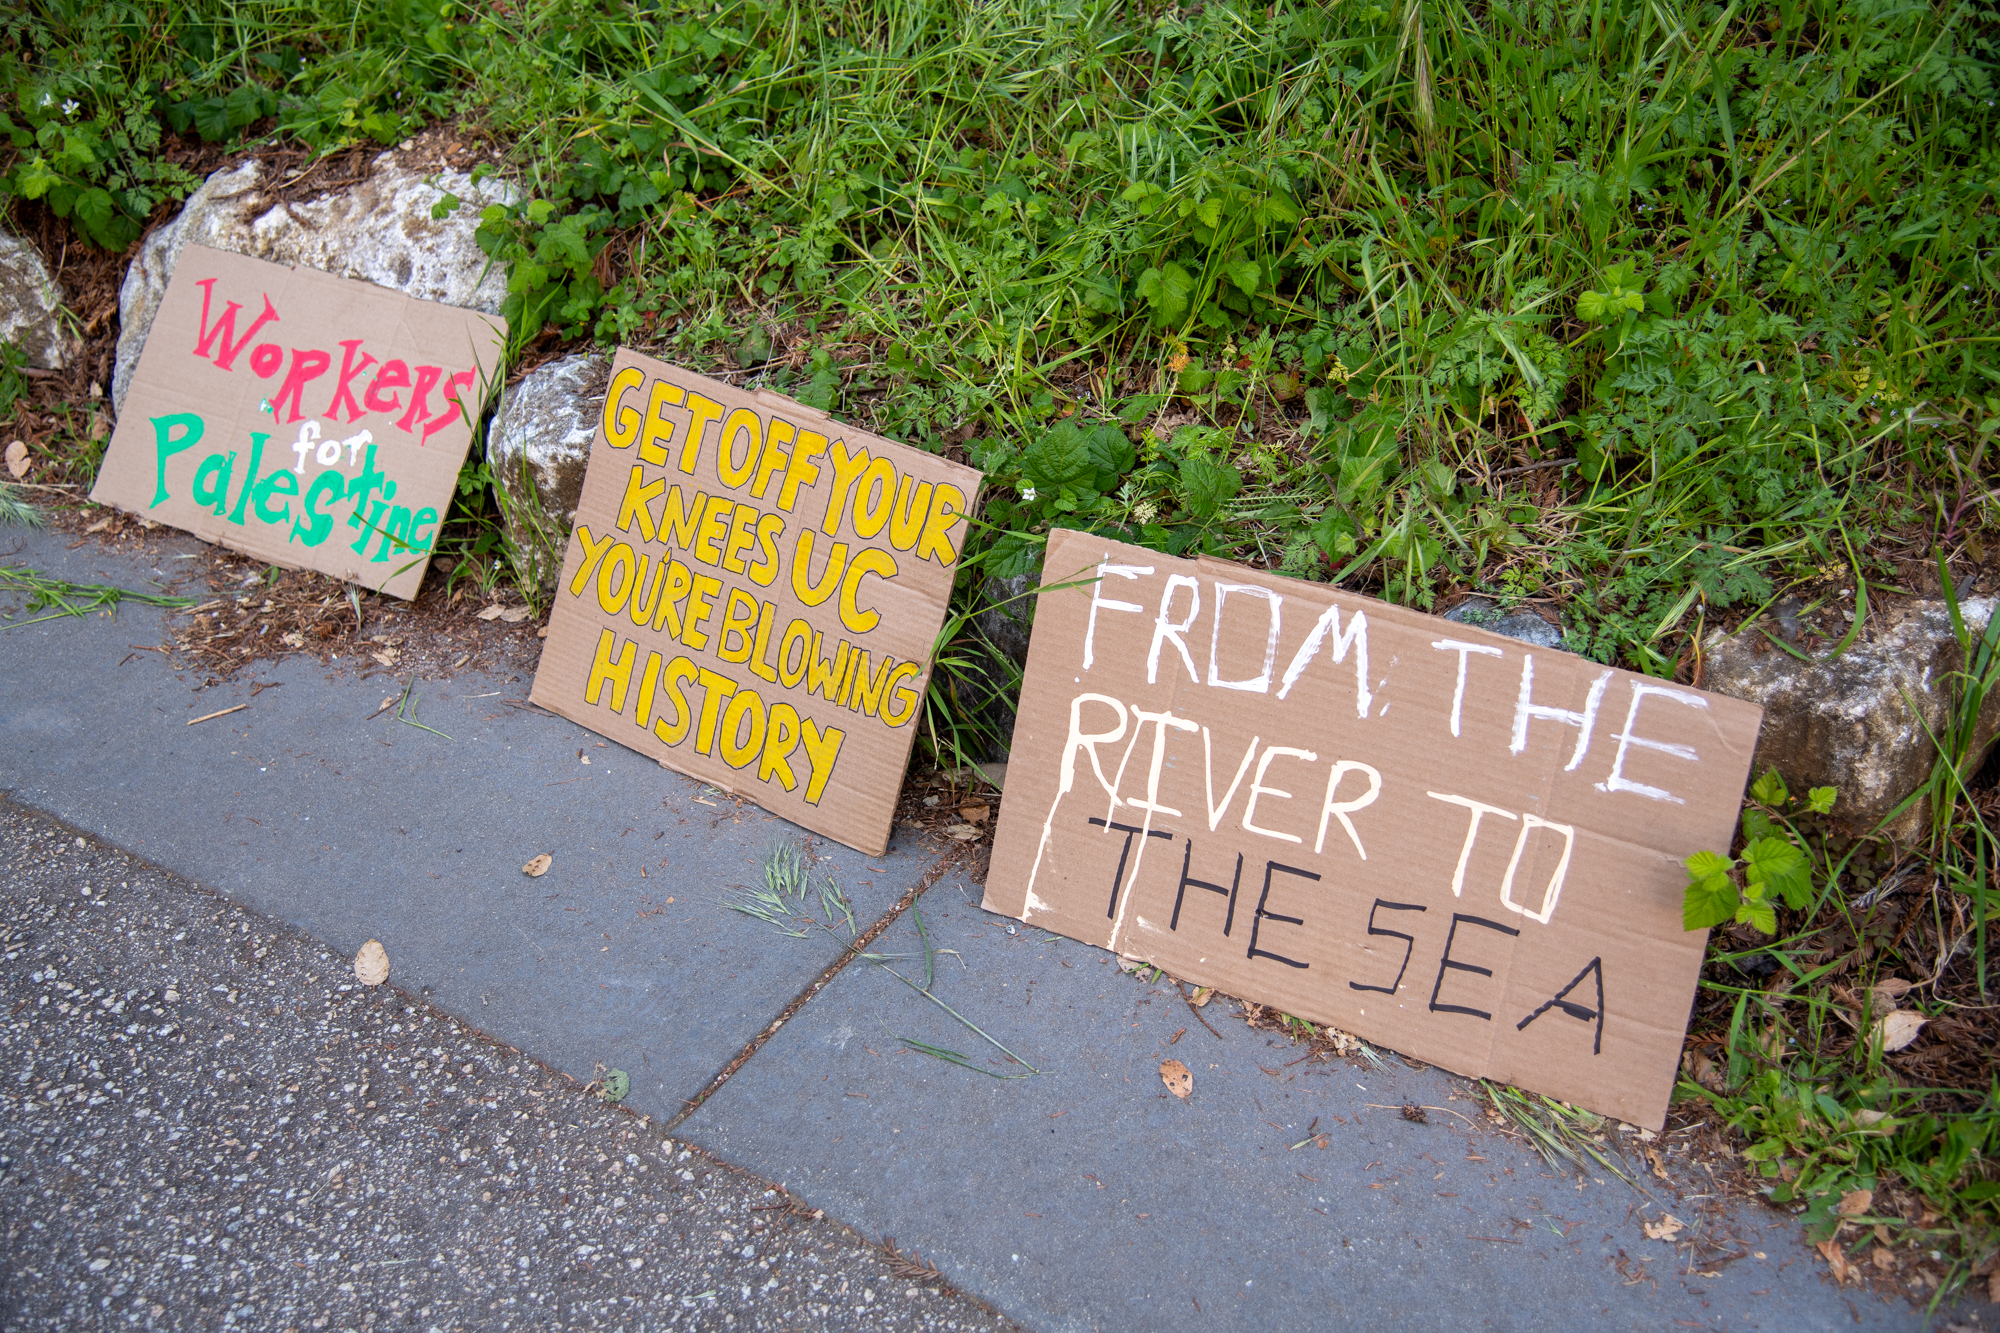 Workers
for
Palestine
GET OFF YOUR
KNEES UC
YOU'RE BLOWING
HISTORY
FROM THE
RIVER TO
THE SEA